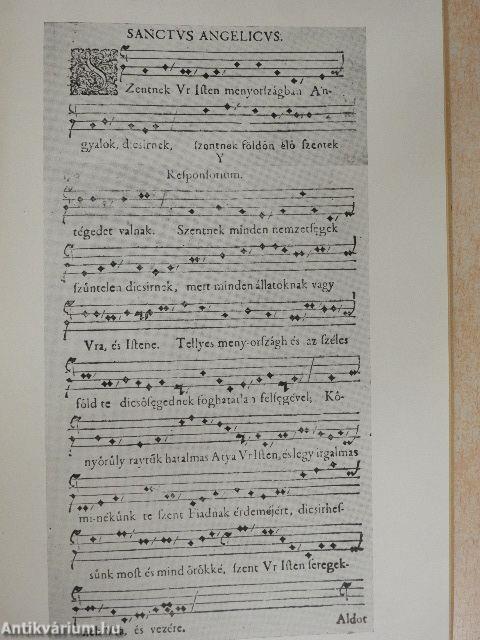 SANCTVS ANGELICVS.
SZentnek Vr Isten menyországban An-
gyalok, dicsirnek, szentnek földön élö szentek
Y
Responsorium.
tégedet valnak. Szentnek minden nemzetségek
szüntelen dicsirnek, mert minden állatoknak vagy
Vra, és Istene. Tellyes meny-országh és az széles
föld te dicsöségednek foghatatlan felségével; Kö-
nyörüly raytúk hatalmas Atya Vr Isten, és legy irgalmas
mi-nékünk te szent Fiadnak érdeméjért, dicsirhes-
sünk most és mind örökké, szent Vr Isten seregek-
és vezére.
Aldot
Antikvárium.hu